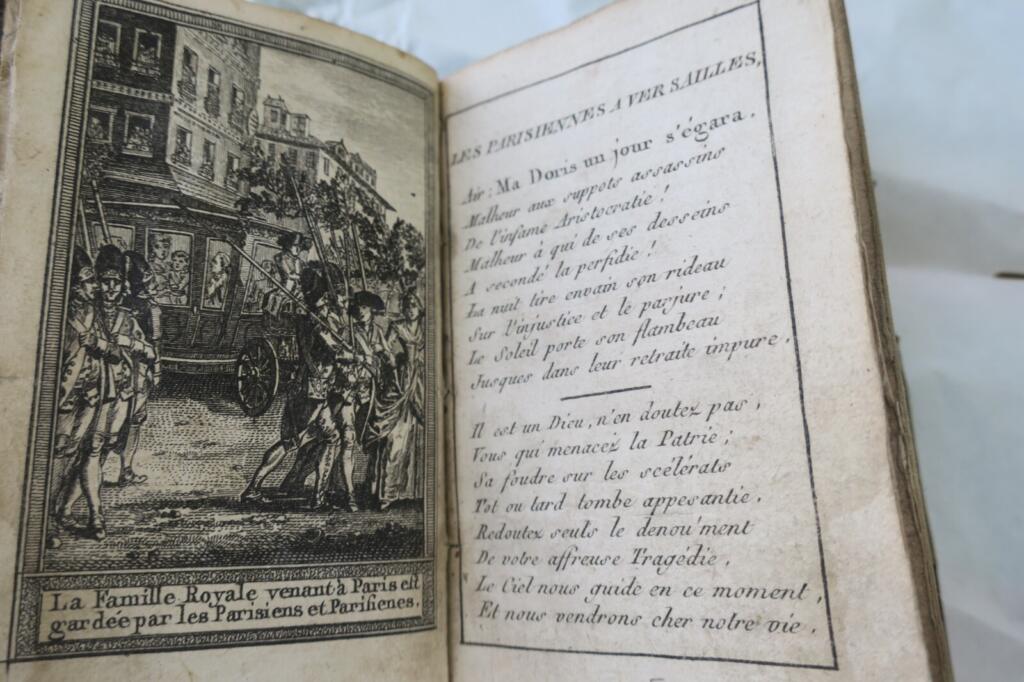 La Famille Royale venant à Paris est
gardée par les Parisiens et Parisienes.
LES PARISIENNES A VERSAILLES,
Air : Ma Doris un jour s'égara.
Malheur aux suppots assassins
De l'infame Aristocratie !
Malheur à qui de ses desseins
A secondé la perfidie !
La nuit tire envain son rideau
Sur l'injustice et le parjure ;
Le Soleil porte son flambeau
Jusques dans leur retraite impure.
Il est un Dieu, n'en doutez pas,
Vous qui menacez la Patrie ;
Sa foudre sur les scélérats
Tot ou tard tombe appesantie.
Redoutez seuls le denoûment
De votre affreuse Tragédie,
Le Ciel nous guide en ce moment,
Et nous vendrons cher notre vie.